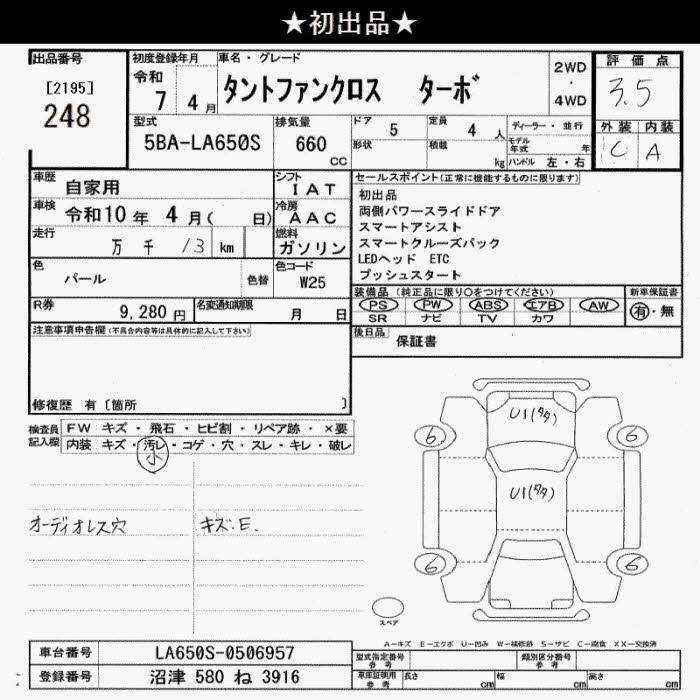 ★初出品★
出品番号
[2195]
248
初度登録年月
令和
7 4月
車名・グレード
タントファンクロス ターボ
2WD
・
4WD
評価点
3.5
型式
5BA-LA650S
排気量
660
cc
ドア
5
形状
定員
4 人
積載
kg
ディーラー・並行
モデル年式 年
ハンドル 左・右
外装 内装
C A
車歴 自家用
シフト
IAT
車検 令和10年 4月( 日)
冷房
AAC
走行 万 千 13 km
燃料
ガソリン
色
パール
色替
色コード
W25
R券
9,280円
名変通知期限
月 日
セールスポイント(正常に機能するものに限ります)
初出品
両側パワースライドドア
スマートアシスト
スマートクルーズパック
LEDヘッド ETC
プッシュスタート
装備品(純正品に限り○をつけてください)
PS PW ABS エアB AW
SR ナビ TV カワ
新車保証書
有・無
後日品
保証書
注意事項申告欄(不具合内容等は具体的に記入して下さい)
修復歴 有〔箇所 〕
検査員記入欄
FW キズ・飛石・ヒビ割・リペア跡・×要
内装 キズ・汚レ・コゲ・穴・スレ・キレ・破レ
小
オーディオレス穴
キズ.E.
U1(タタ)
6 6
U1(タタ)
6 6
スペア
A-キズ E-エクボ U-凹み W-補修跡 S-サビ C-腐食 XX-交換済
車台番号 LA650S-0506957
登録番号 沼津 580 ね 3916
型式指定番号
参考
類別区分番号
参考
車庫証明用
参考
長さ cm 幅 cm 高さ cm